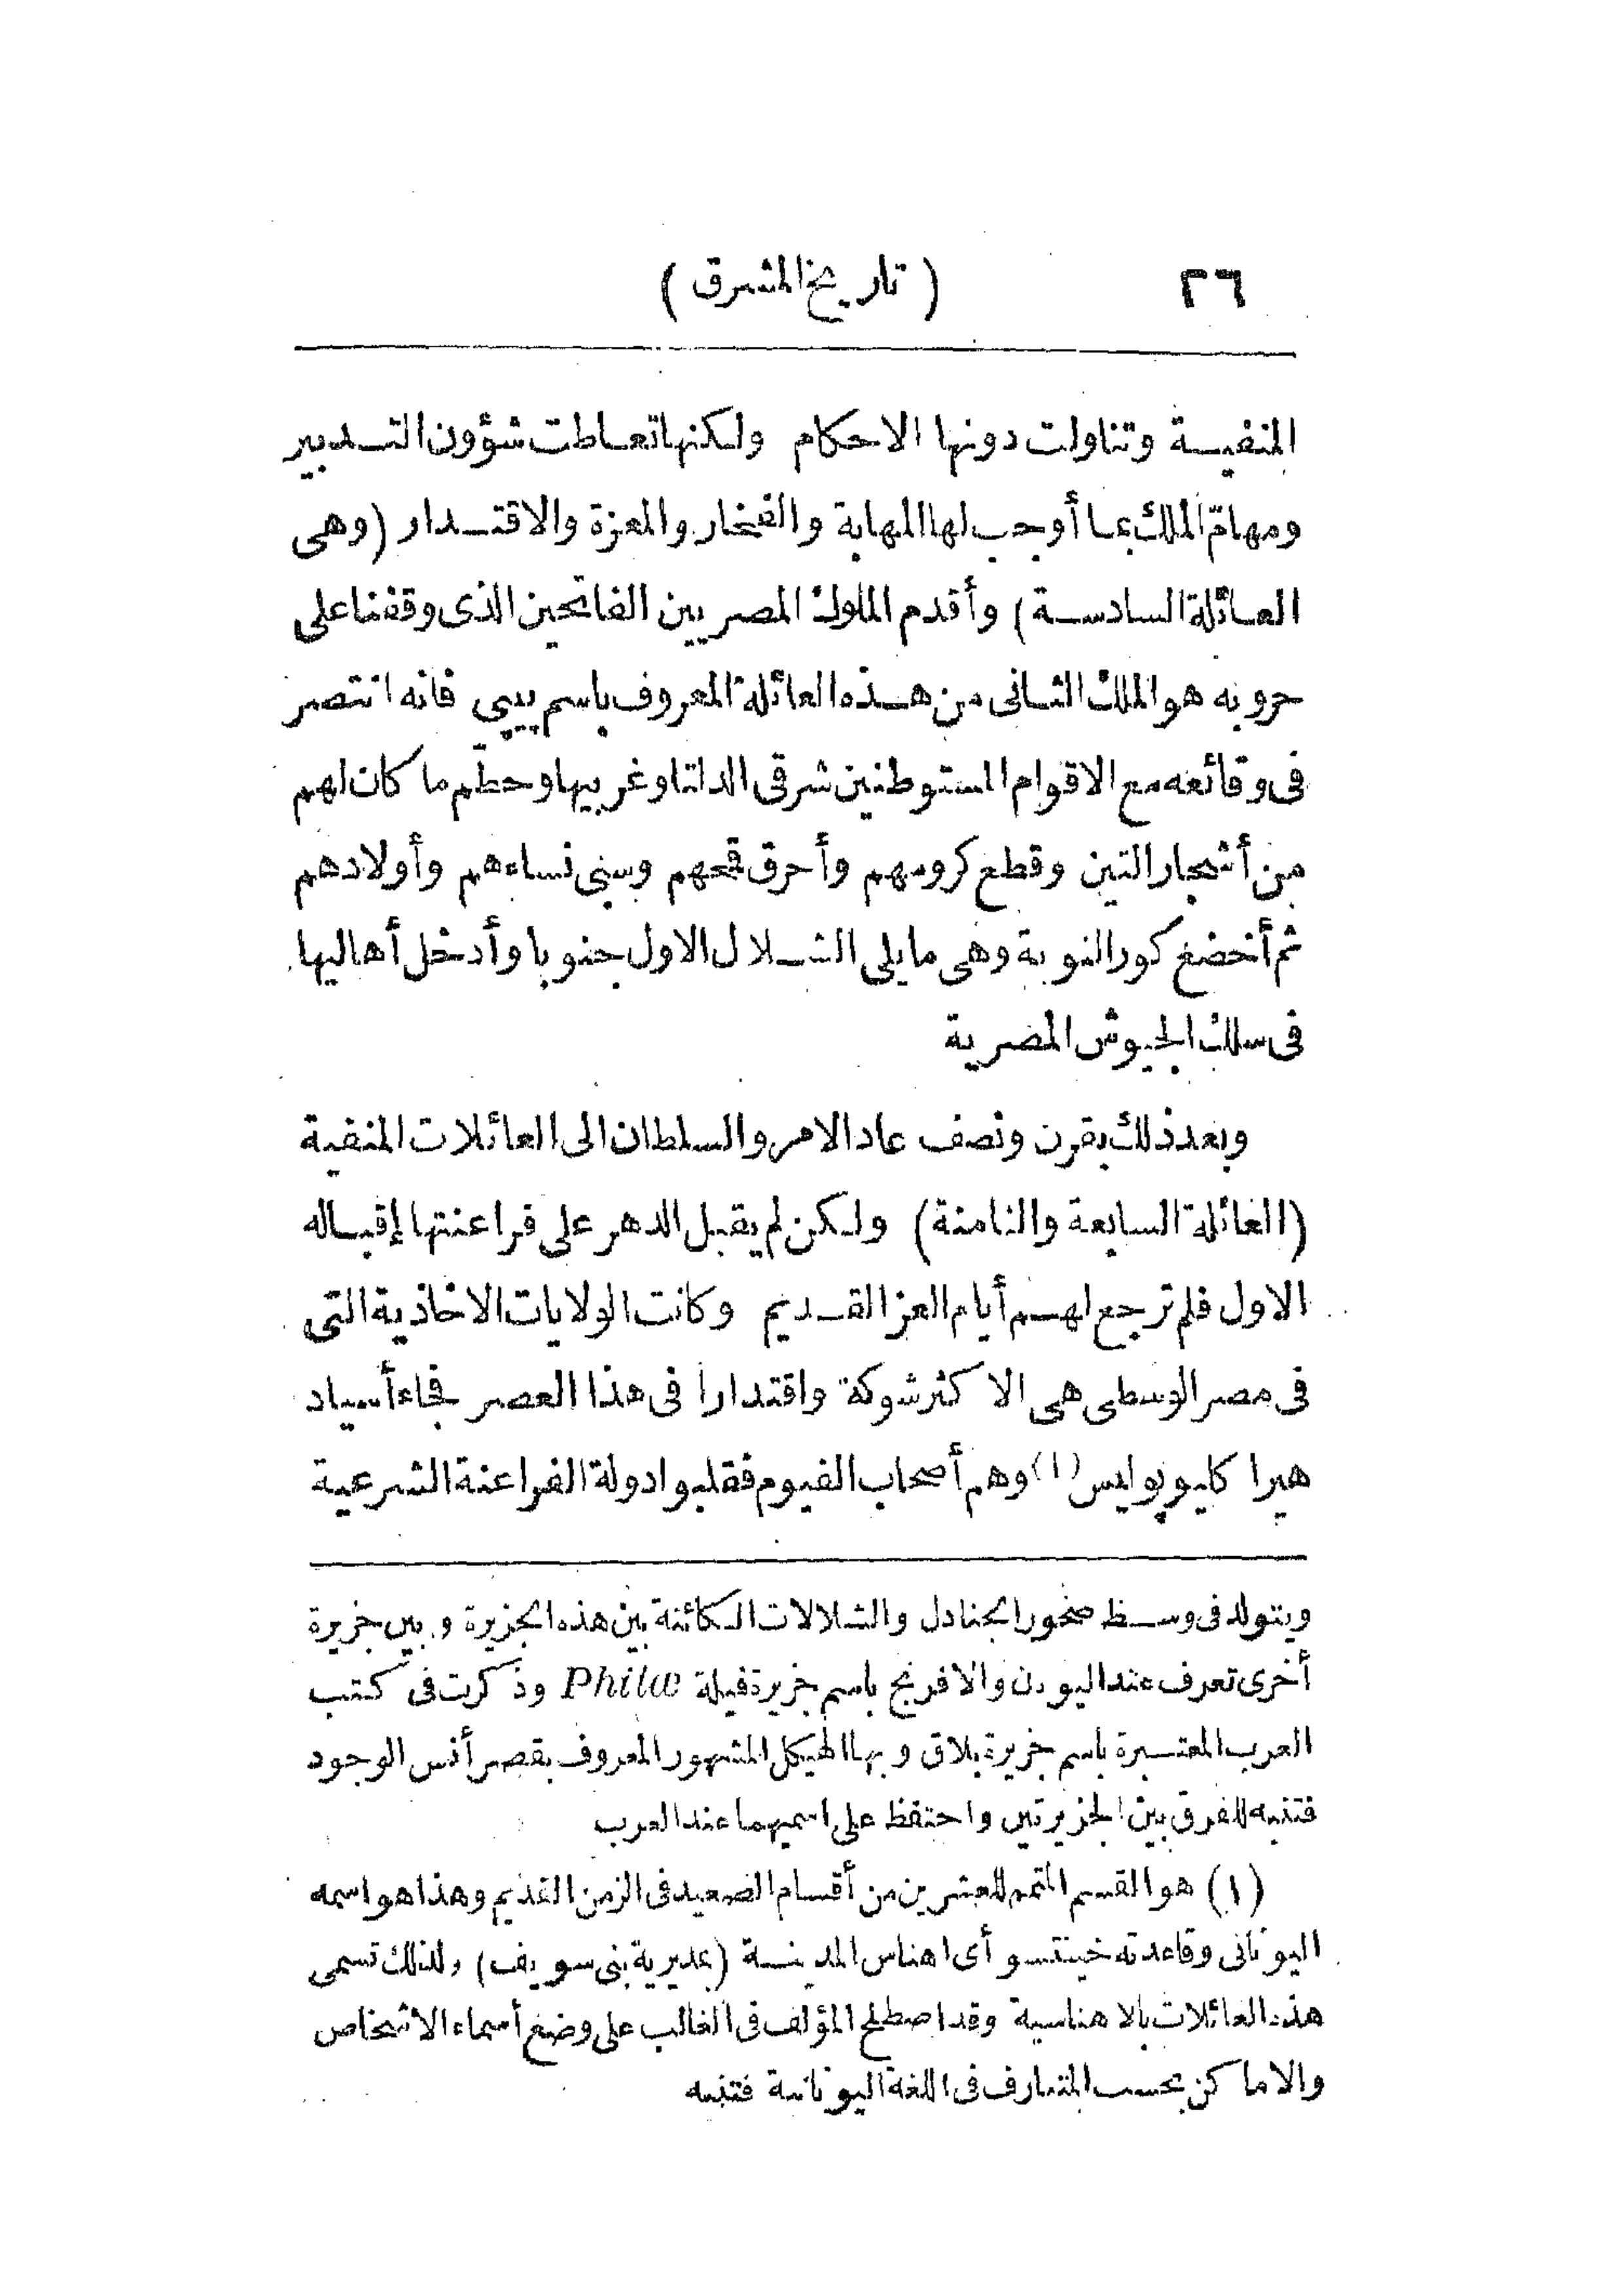 ٢٦
( تاريخ المشرق )
المنفيسة وتناولت دونها الاحكام ولكنها تعاطت شؤون التدبير
ومهام الملك بما أوجب لها المهابة والفخار والمعزة والاقتدار (وهى
العائلة السادسة) وأقدم الملوك المصريين الفاتحين الذى وقفنا على
حروبه هو الملك الثانى من هذه العائلة المعروف باسم پيپي فانه انتصر
فى وقائعه مع الاقوام المستوطنين شرقى الدلتا وغربيها وحطم ما كان لهم
من أشجار التين وقطع كرومهم وأحرق قمحهم وسبى نساءهم وأولادهم
ثم أخضع كور النوبة وهى ما يلى الشلال الاول جنوبا وأدخل أهاليها
فى سلك الجيوش المصرية
وبعد ذلك بقرن ونصف عاد الامر والسلطان الى العائلات المنفية
(العائلة السابعة والثامنة) ولكن لم يقبل الدهر على فراعنتها إقباله
الاول فلم ترجع لهم أيام العز القديم وكانت الولايات الاخاذية التى
فى مصر الوسطى هى الاكثر شوكة واقتدارا فى هذا العصر فجاء أسياد
هيراكليوپوليس (١) وهم أصحاب الفيوم فقلبوا دولة الفراعنة الشرعية
ويتولد فى وسط صخور الجنادل والشلالات الكائنة بين هذه الجزيرة وبين جزيرة
أخرى تعرف عند اليونان والافرنج باسم جزيرة فيلة Philæ وذكرت فى كتب
العرب المعتبرة باسم جزيرة بلاق وبها الهيكل المشهور المعروف بقصر أنس الوجود
فتنبه للفرق بين الجزيرتين واحتفظ على اسميهما عند العرب
(١) هو القسم المتمم للعشرين من أقسام الصعيد فى الزمن القديم وهذا هو اسمه
اليونانى وقاعدته خينتسو أى اهناس المدينة (بمديرية بنى سويف) ولذلك تسمى
هذه العائلات بالاهناسية وقد اصطلح المؤلف فى الغالب على وضع أسماء الاشخاص
والاماكن بحسب المتعارف فى اللغة اليونانية فتنبه